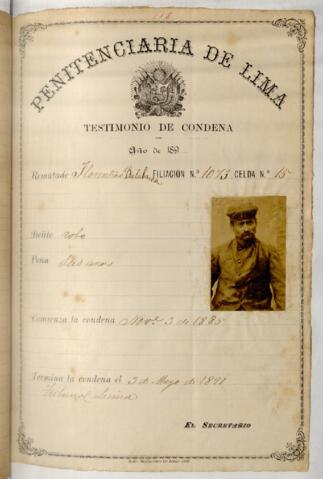 PENITENCIARIA DE LIMA
TESTIMONIO DE CONDENA
Año de 189
Rematado Florentino FILIACIÓN N.º 1073 CELDA N.º 15
Delito robo
Pena Seis años
Comienza la condena Nov.e 3 de 1885
Termina la condena el 3 de Mayo de 1891
EL SECRETARIO